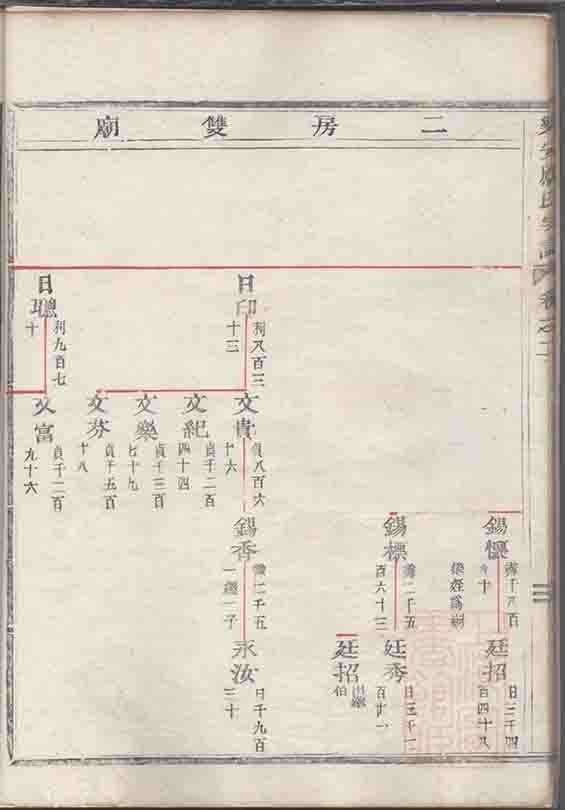 二房雙廟
日印
列八百三
十三
日聰
列九百七
十
文貴
貞八百六
十六
文紀
貞千二百
四十四
文樂
貞千三百
七十九
文芬
貞千五百
十八
文富
貞千二百
九十六
錫懷
錫標
二千五
百六十三
錫香
二千五
廷招
日三千四
百四十八
廷秀
日三千一
百廿一
廷招
出繼
伯
永汝
日千九百
三十